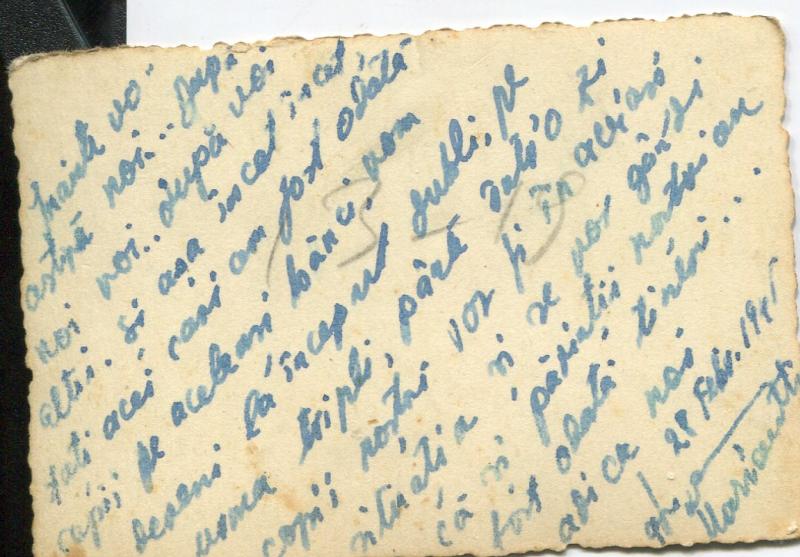 Înainte vo-
astră noi... după
noi voi... după voi
alții. Și așa încet încet
toți acei cari am fost odată
copii pe aceleași bănci, vom
deveni la început dubli, pe
urmă tripli, până într'o zi
copii noștri vor fi în aceiași
situație și se vor gândi
că și părinții noștri au
fost odată tineri...
adică noi
28 Febr. 194